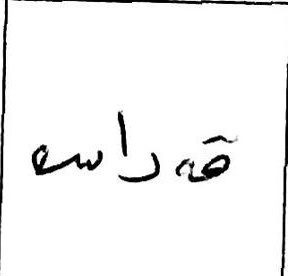 قەراسە